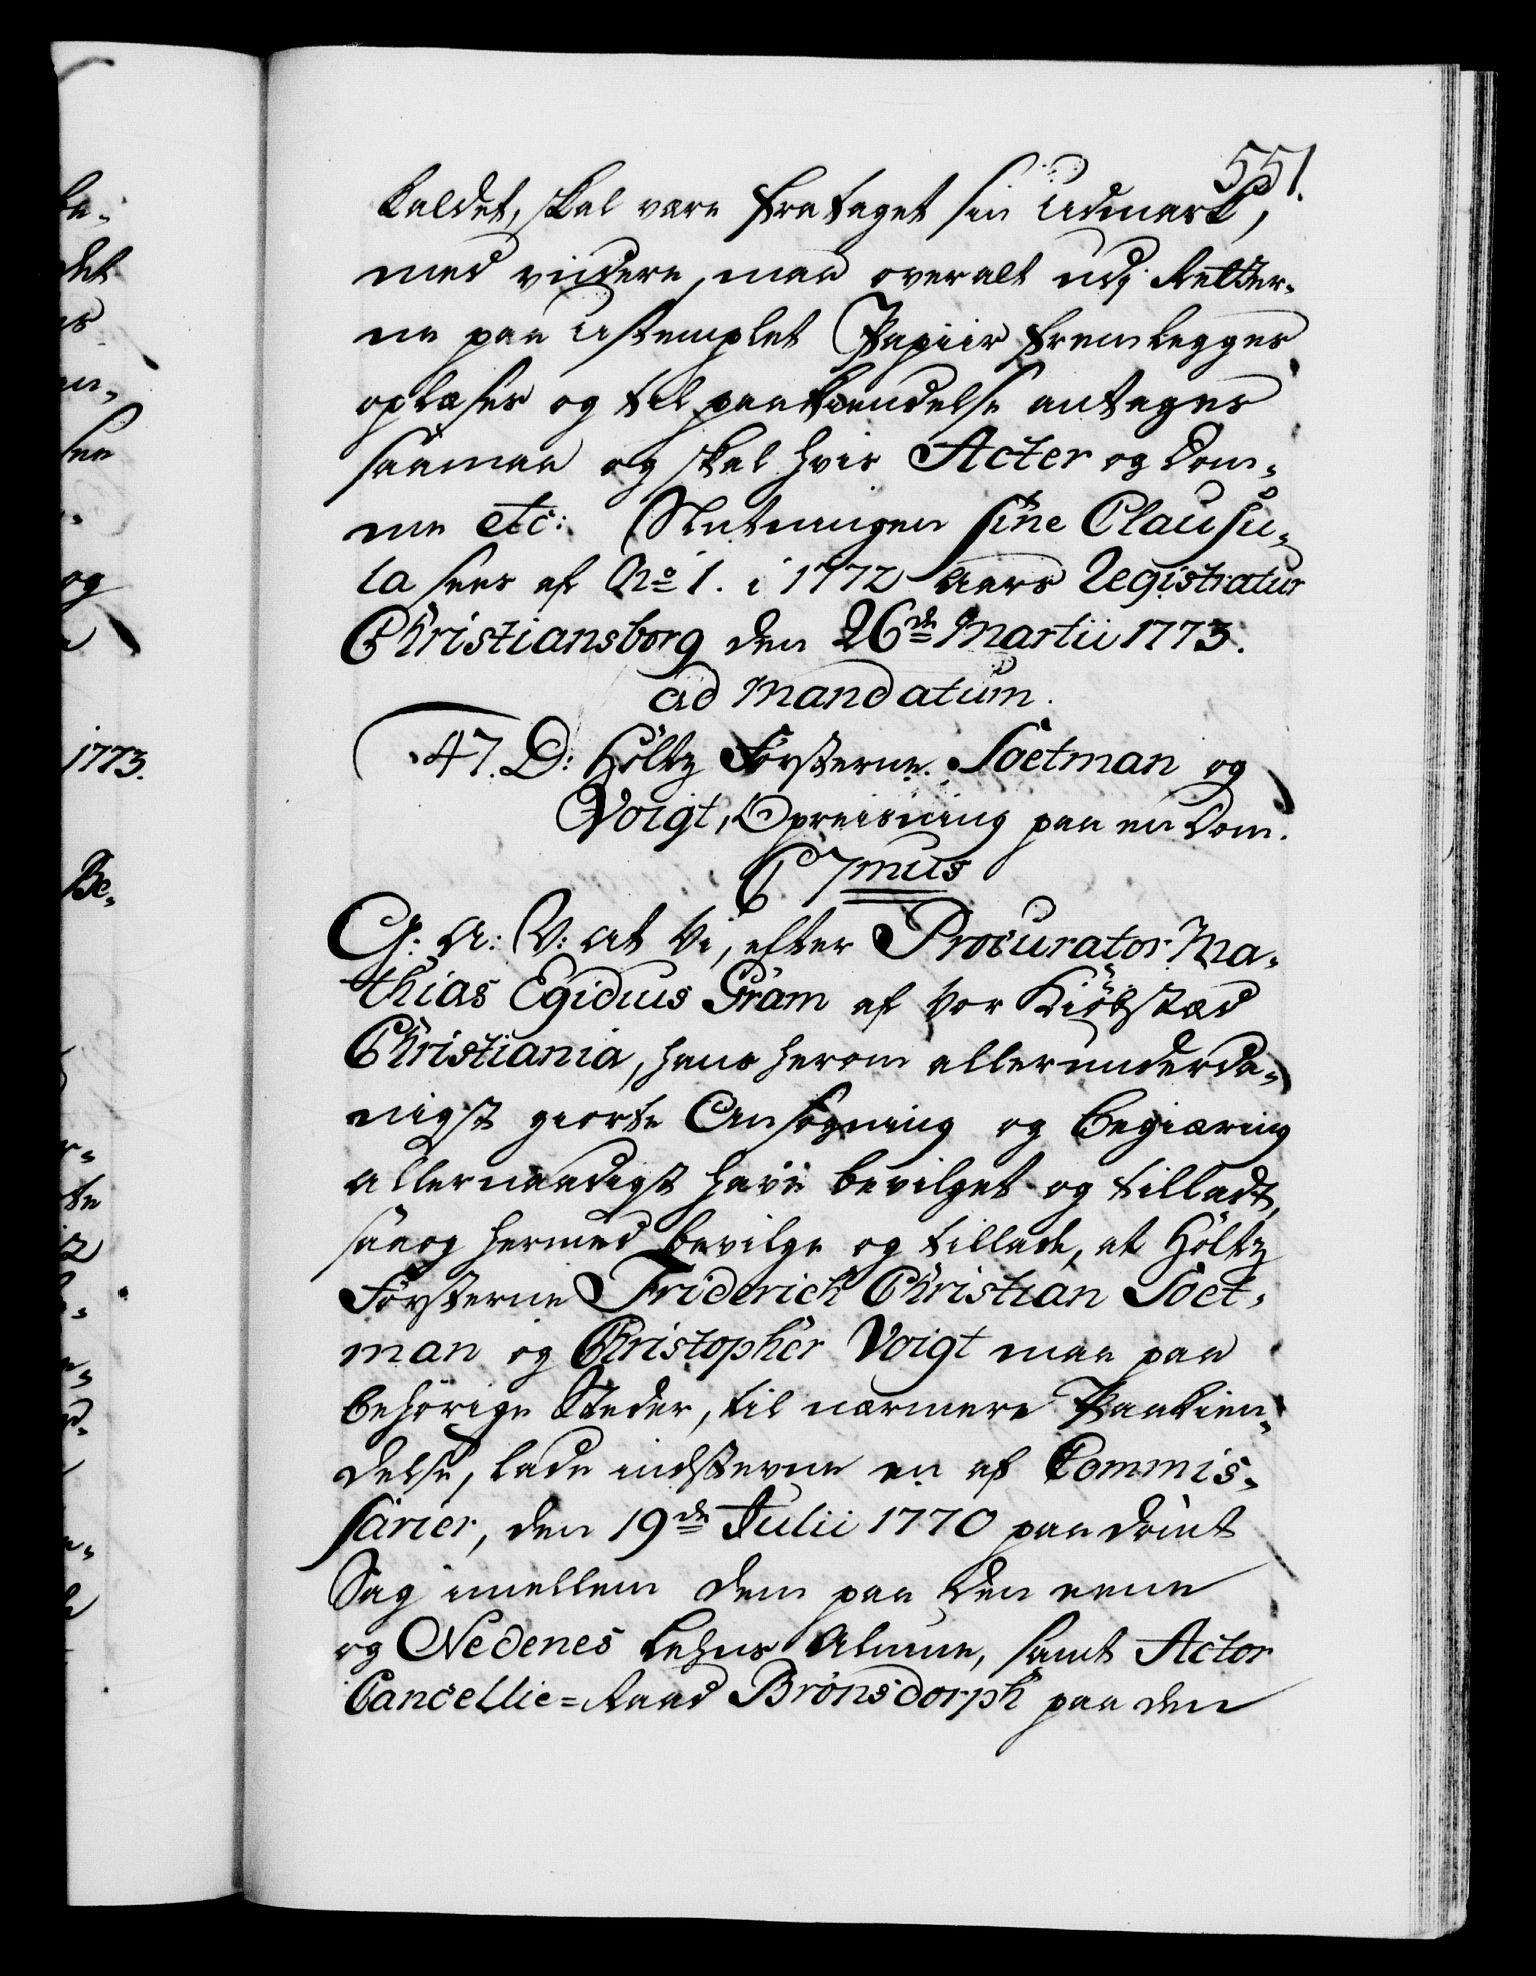 551.
kaldet, skal være frataget sin Udmark,
med viidere, maa overalt udj Retter-
ne paa ustemplet Papiir fremlegges
oplæses og til paakiendelse antages
saamaa og skal hvis Acter og Dom-
me etc: Slutningen sine Clausu-
la sees af No 1. i 1772 Aars Registratur
Christiansborg den 26de Martii 1773.
ad mandatum.
47. D: Höltz Försterne Soetman og
Voigt, Opreisning paa en Dom.
6 7mus
G: A: V: at Vi, efter Procurator Ma-
thias Egidius Gram af vor Kiöbstæd
Christiania, hans herom allerunderda-
nigst giorte Ansøgning og Begiæring
allernaadigst have bevilget og tilladt,
saa og hermed bevilge og tillade, at Höltz
Försterne Friderich Christian Soet-
man og Christopher Voigt maa paa
behörige Steder, til nærmere Paakien-
delse, lade indstevne en af Commis-
sarier, den 19de Julii 1770 paadömt
Sag imellem dem paa den eene
og Nedenes Lehns Almue, samt Actor
Cancellie=Raad Brönsdorph paa den
ke-
det
og
1773.
Be-
te